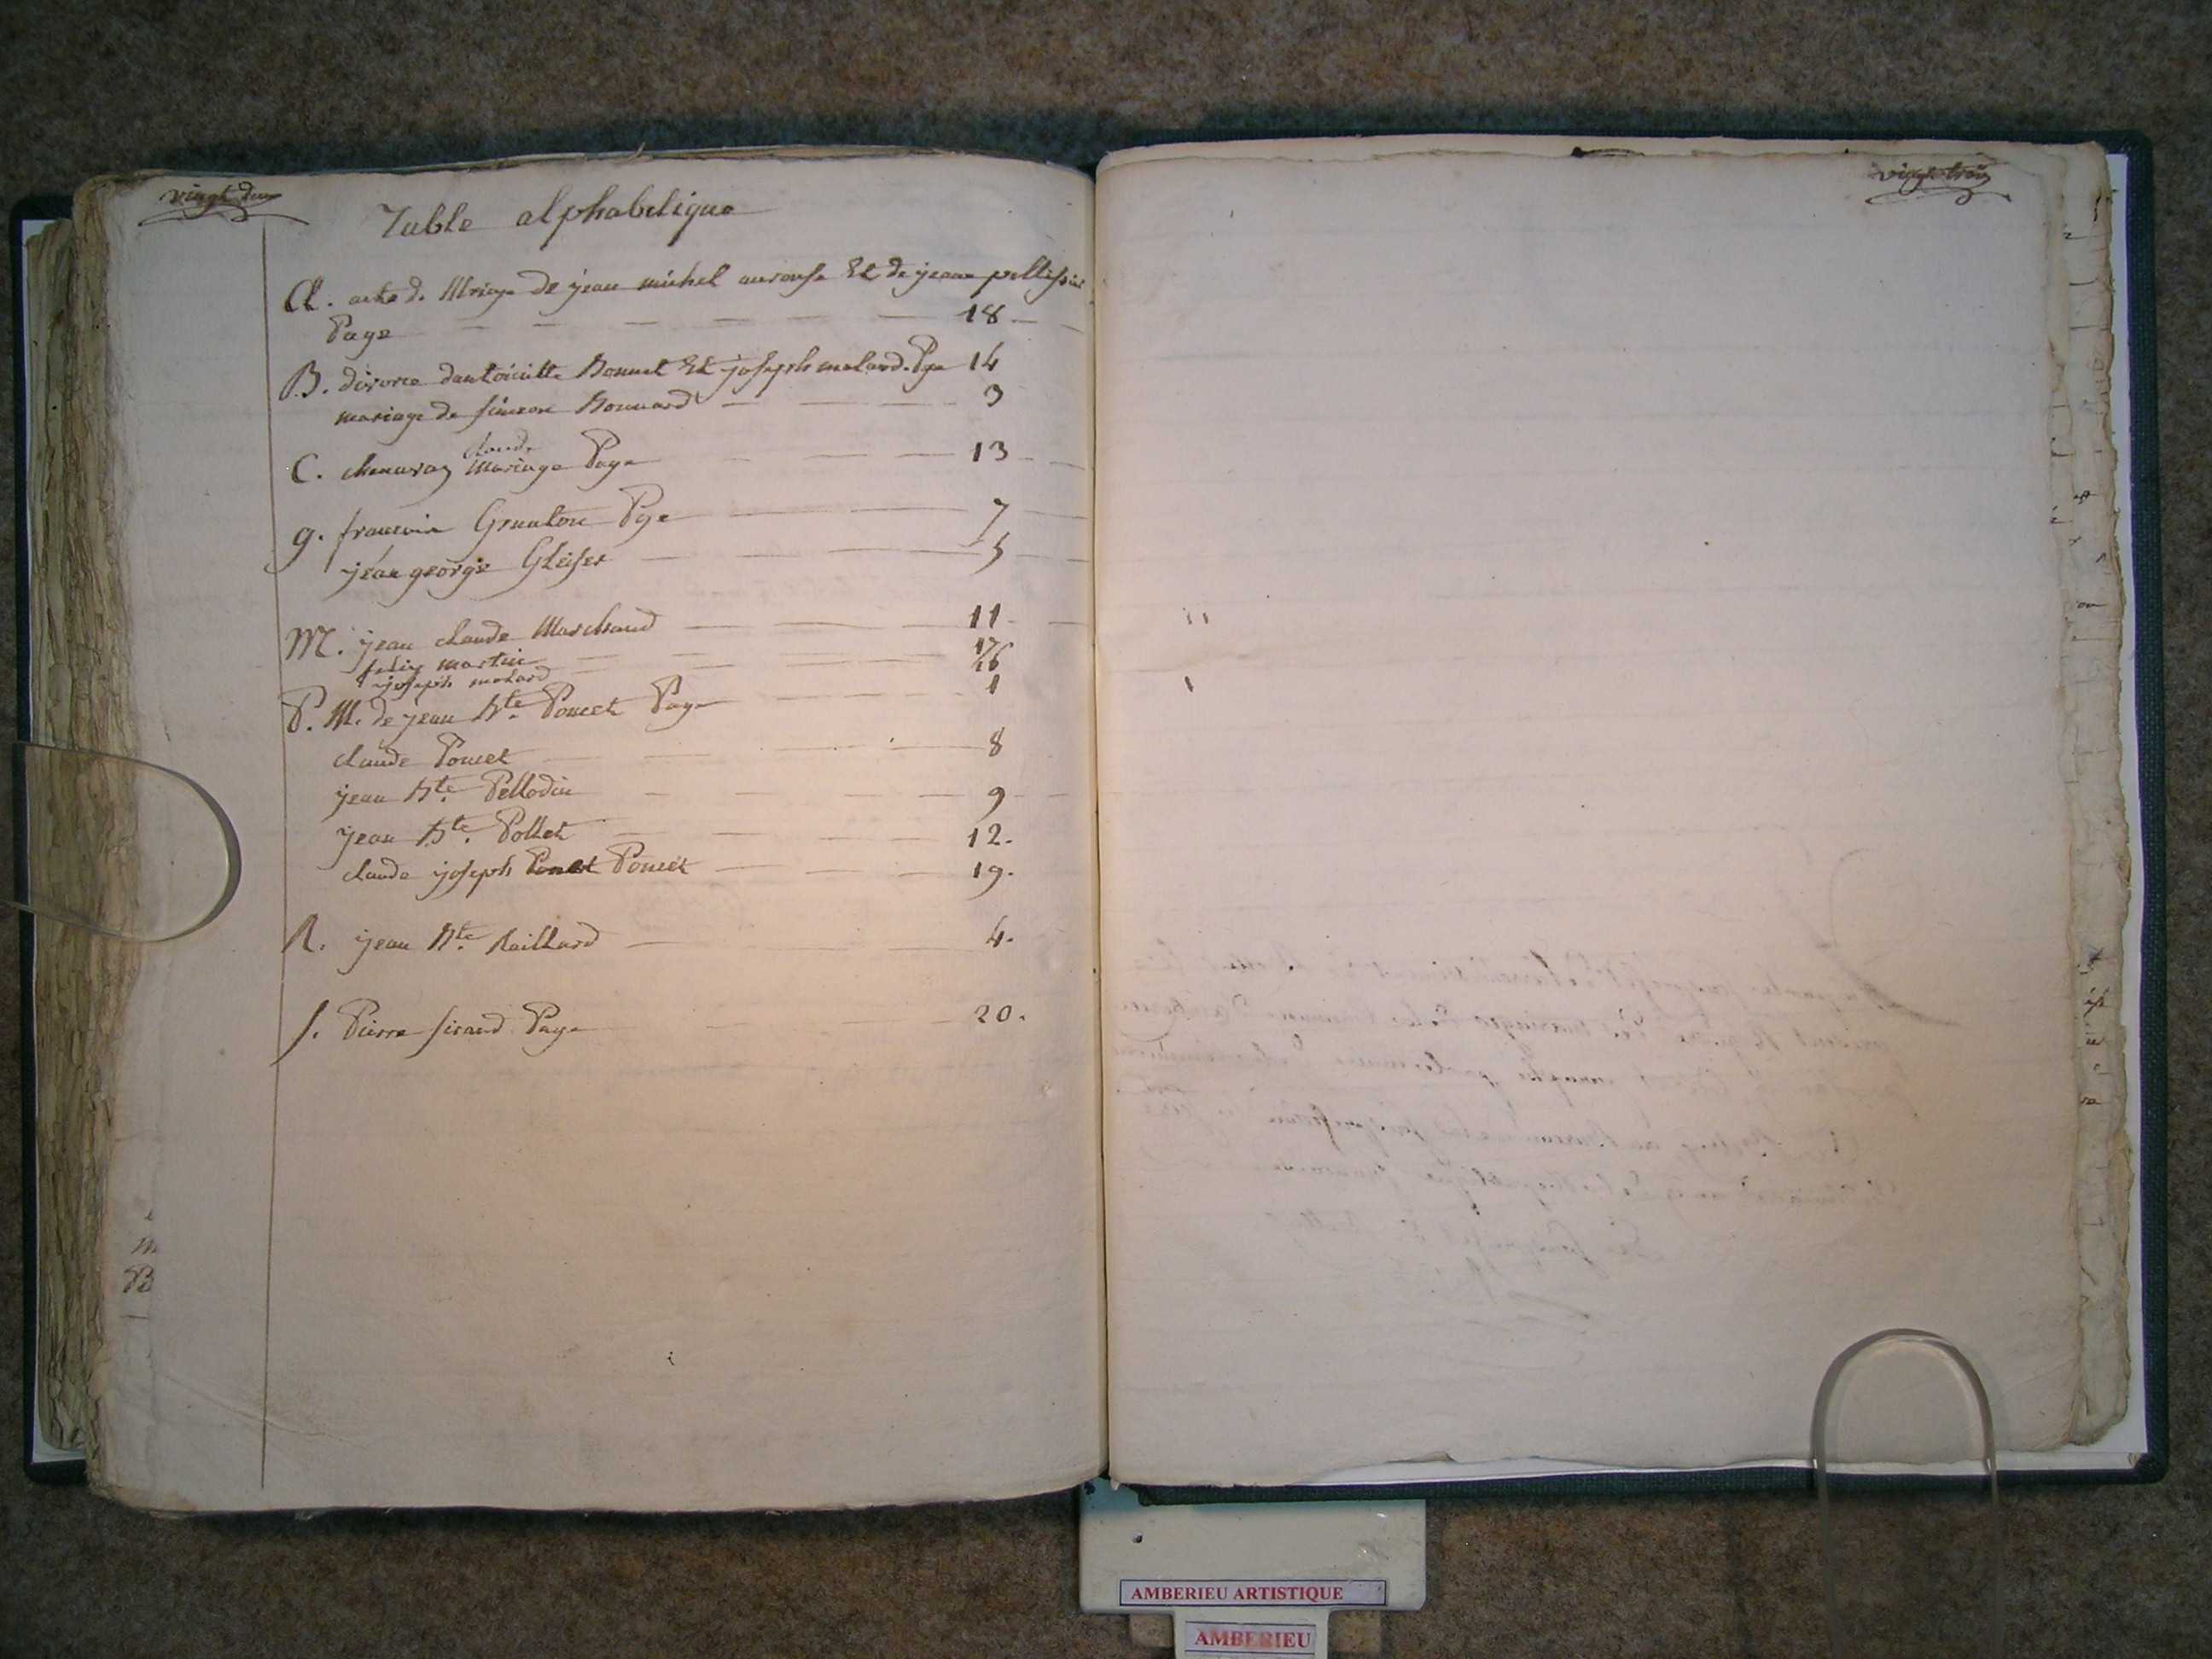 vingt deux
Table alphabetique
A. acte de Mriage de jean michel aurouse Et de jeane pellissier
Page 18
B. divorce dantoinette Bonnet Et joseph molard. Pge 14
mariage de simeon Bonnard 3
claude
C. chenavaz Mariage Page 13
g. francois Granton Pge 7
jean george Gleiser 5
M. jean claude Marchand 11
felix martin 17
joseph molard 16
P. M. de jean Bte. Poncet Page 1
claude Poncet 8
jean Bte. Pellodin 9
jean Bte. Pollet 12.
claude joseph Poncet 19.
R. jean Bte. Raillard 4.
S. Pierre sirand Page 20.
vingt trois
AMBERIEU ARTISTIQUE
AMBERIEU